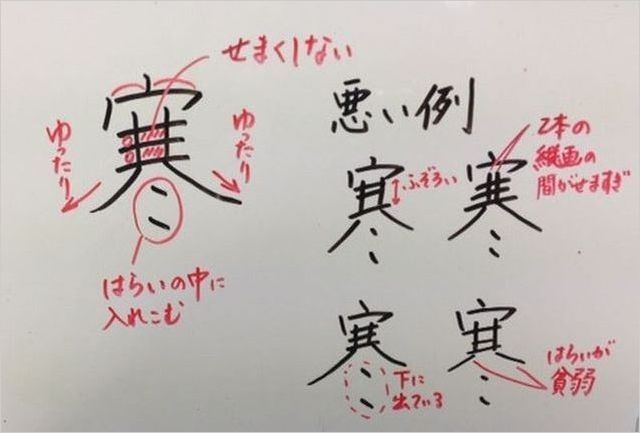 せまくしない
寒
ゆったり
ゆったり
はらいの中に
入れこむ
悪い例
寒
ふぞろい
寒
2本の
縦画の
間がせますぎ
寒
下に
出ている
寒
はらいが
貧弱